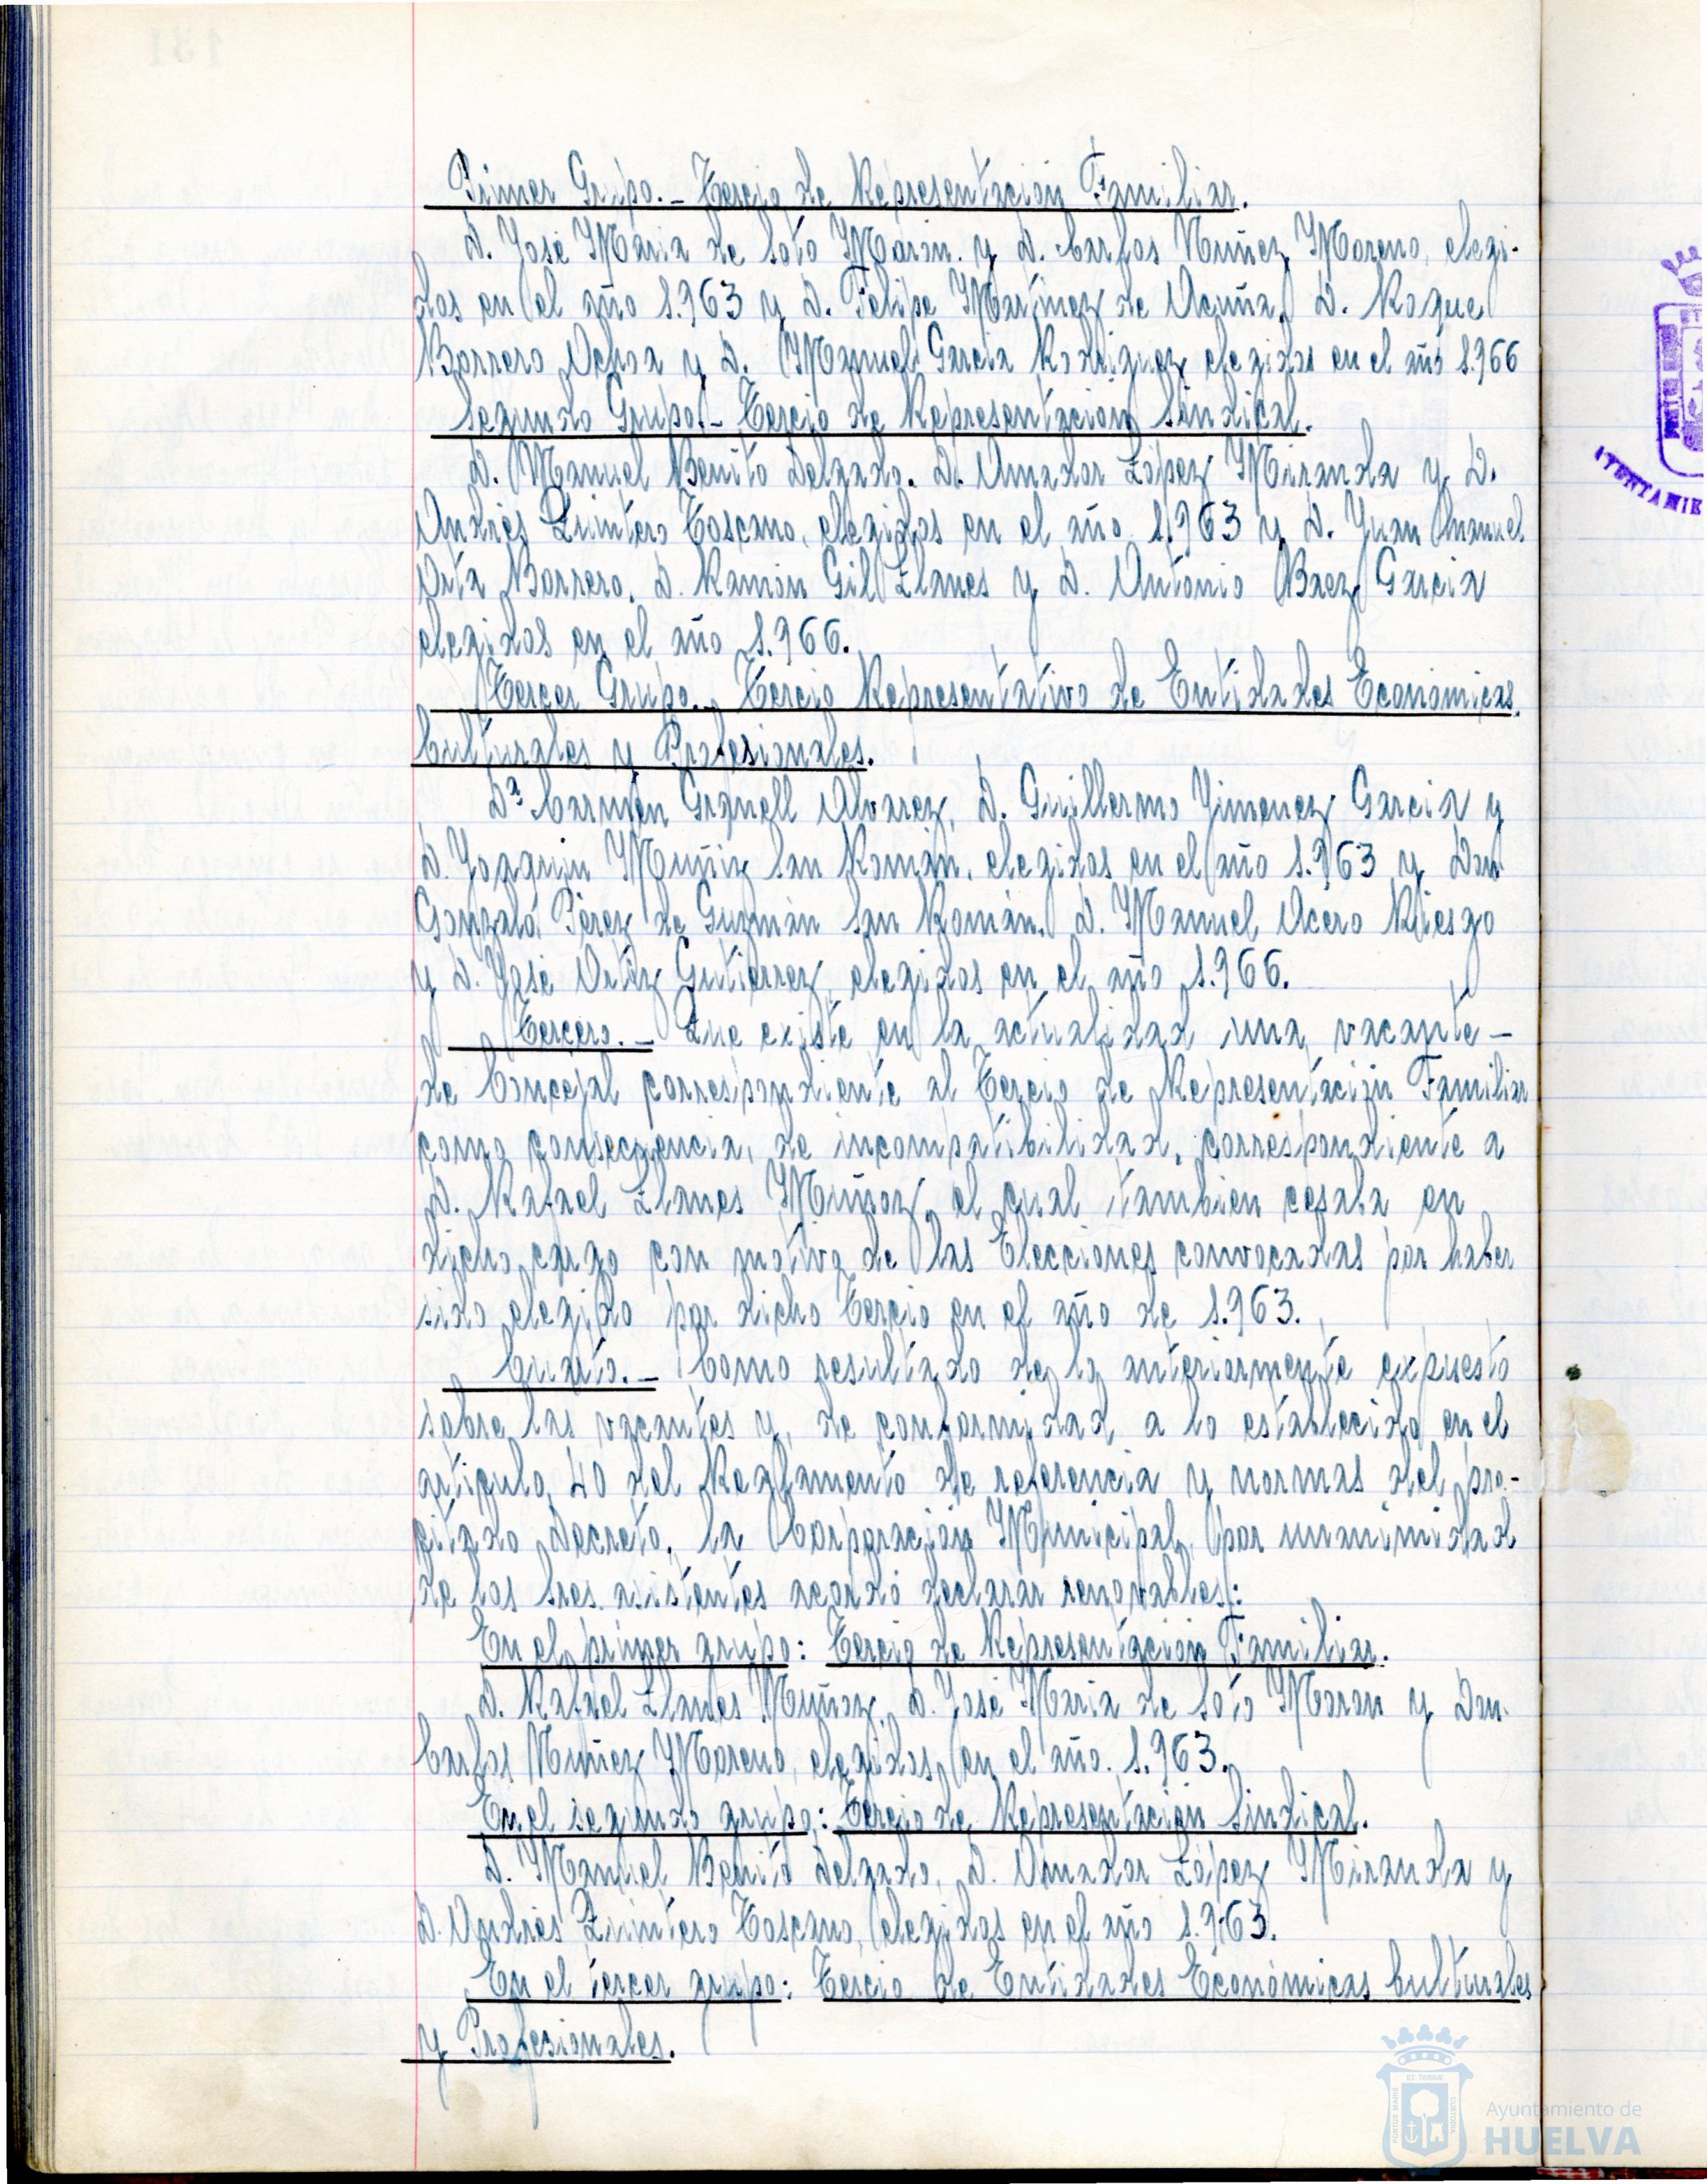 Primer Grupo.- Tercio de Representación Familiar.
D. José Maria de Soto Morón. y D. Carlos Nuñez Moreno, elegi-
dos en el año 1.963 y D. Felipe Martinez de Acuña, D. Roque
Borrero Ochoa y D. Manuel Garcia Rodriguez elegidos en el año 1.966
Segundo Grupo.- Tercio de Representación Sindical.
D. Manuel Benito Delgado. D. Amador López Miranda y D.
Andrés Quintero Toscano, elegidos en el año 1.963 y D. Juan Manuel
Orta Borrero. D. Ramón Gil Llanes y D. Antonio Baez Garcia
elegidos en el año 1.966.
Tercer Grupo.- Tercio Representativo de Entidades Económicas,
Culturales y Profesionales.
Dª Carmen Granell Alvarez, D. Guillermo Jimenez Garcia y
D. Joaquin Muñiz San Román, elegidos en el año 1.963 y Don
Gonzaló Pérez de Guzmán San Román. D. Manuel Acero Riesgo
y D. José Ortiz Gutierrez, elegidos en el año 1.966.
Tercero.- Que existe en la actualidad una vacante -
de Concejal correspondiente al Tercio de Representación Familiar
como consecuencia, de incompatibilidad, correspondiente a
D. Rafael Llanes Muñoz, el cual tambien cesaba en
dicho cargo con motivo de las Elecciones convocadas por haber
sido elegido por dicho Tercio en el año de 1.963.
Cuarto.- Como resultado de lo anteriormente expuesto
sobre las vacantes y, de conformidad a lo establecido en el
artículo 40 del Reglamento de referencia y normas del pre-
citado Decreto, la Corporación Municipal, por unanimidad
de los Sres. asistentes acordó declarar renovables:
En el primer grupo: Tercio de Representación Familiar.
D. Rafael Llanes Muñoz, D. José Maria de Soto Moron y Don
Carlos Nuñez Moreno, elegidos, en el año. 1.963.
En el segundo grupo: Tercio de Representación Sindical.
D. Manuel Benito Delgado, D. Amador López Miranda y
D. Andrés Quintero Toscano, elegidos en el año 1.963.
En el tercer grupo: Tercio de Entidades Económicas Culturales
y Profesionales.
Ayuntamiento de
HUELVA